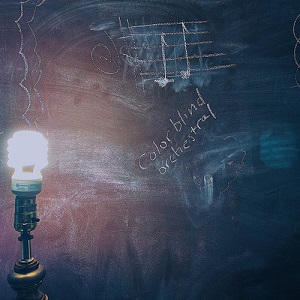 Colorblind
orchestral